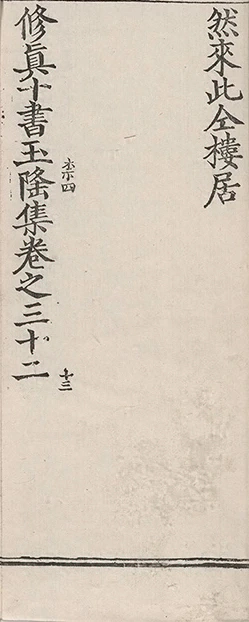 然來此仝樓居
修真十書玉隆集卷之三十二
十三